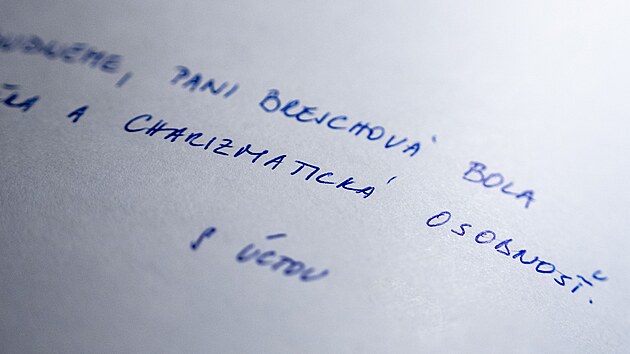 PANI BREJCHOVÁ BOLA
A CHARIZMATICKÁ OSOBNOSŤ.
S ÚCTOU